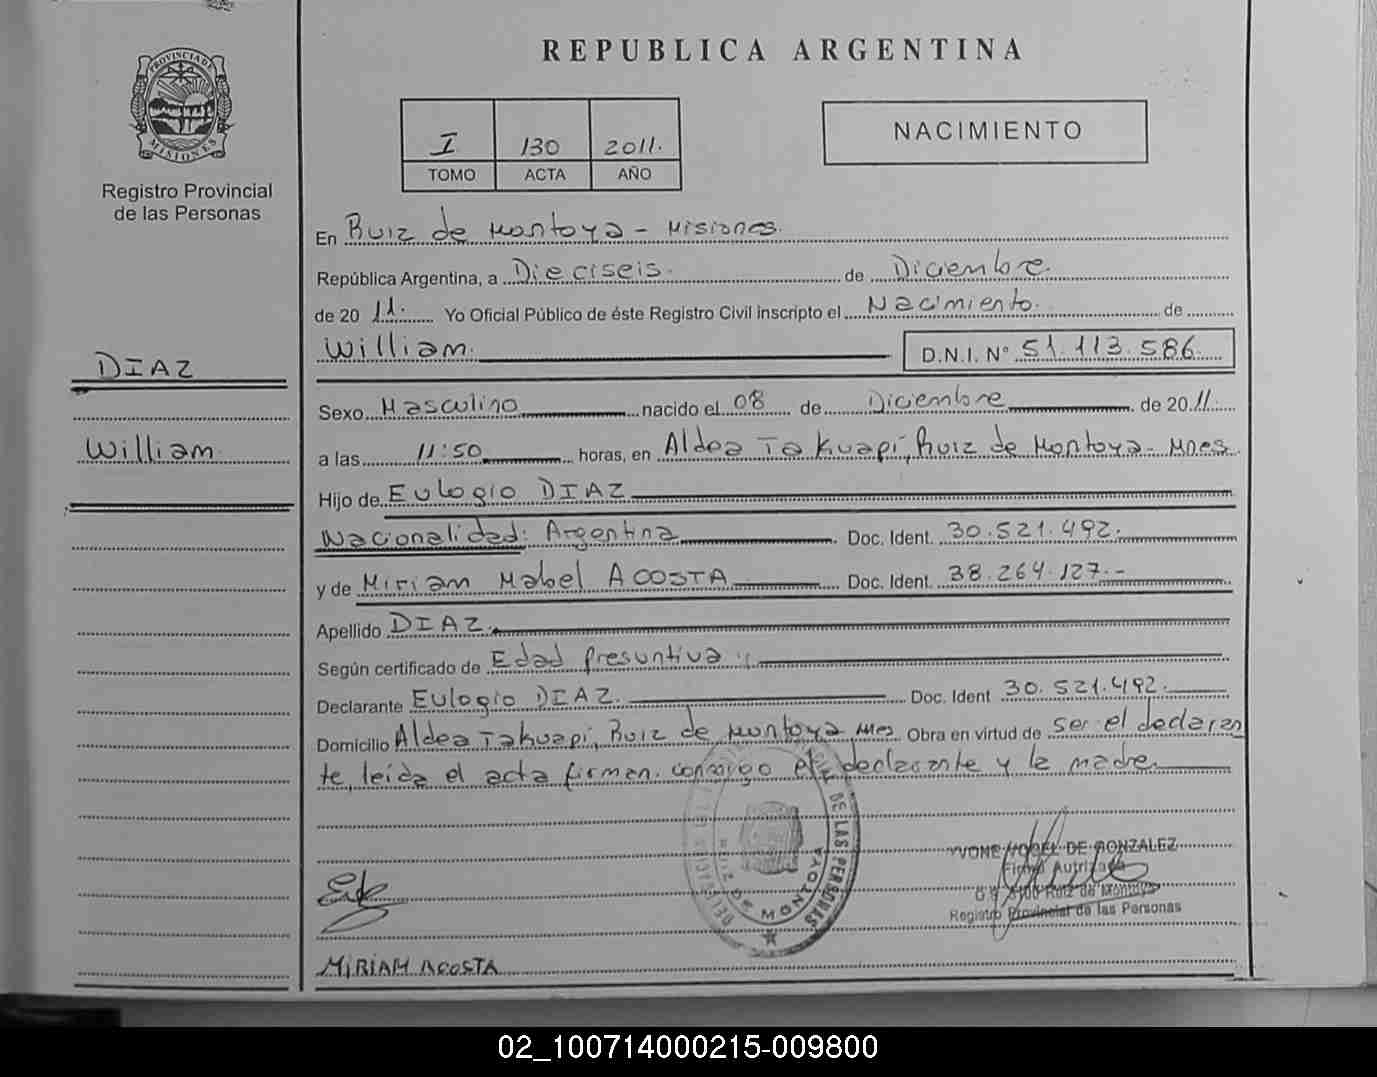 PROVINCIA DE
MISIONES
Registro Provincial
de las Personas
DIAZ
William
REPUBLICA ARGENTINA
I 130 2011.
TOMO ACTA AÑO
NACIMIENTO
En Ruiz de Montoya - Misiones.
República Argentina, a Dieciseis. de Diciembre.
de 20 11. Yo Oficial Público de éste Registro Civil inscripto el Nacimiento. de
William. D.N.I. N° 51.113.586.
Sexo Masculino nacido el 08 de Diciembre de 2011.
a las 11:50 horas, en Aldea Takuapi, Ruiz de Montoya - Mnes.
Hijo de Eulogio DIAZ
Nacionalidad: Argentina Doc. Ident. 30.521.492.
y de Miriam Mabel ACOSTA Doc. Ident. 38.264.127.-
Apellido DIAZ.
Según certificado de Edad presuntiva
Declarante Eulogio DIAZ. Doc. Ident 30.521.492.
Domicilio Aldea Takuapi, Ruiz de Montoya Mnes Obra en virtud de ser el declaran
te, leída el acta firman conmigo el declarante y la madre.
DE LAS PERSONAS
RUIZ DE MONTOYA
YVONE DE GONZALEZ
Firma Autrizada
Ruiz de Montoya
Registro Provincial de las Personas
MIRIAM ACOSTA
02_100714000215-009800